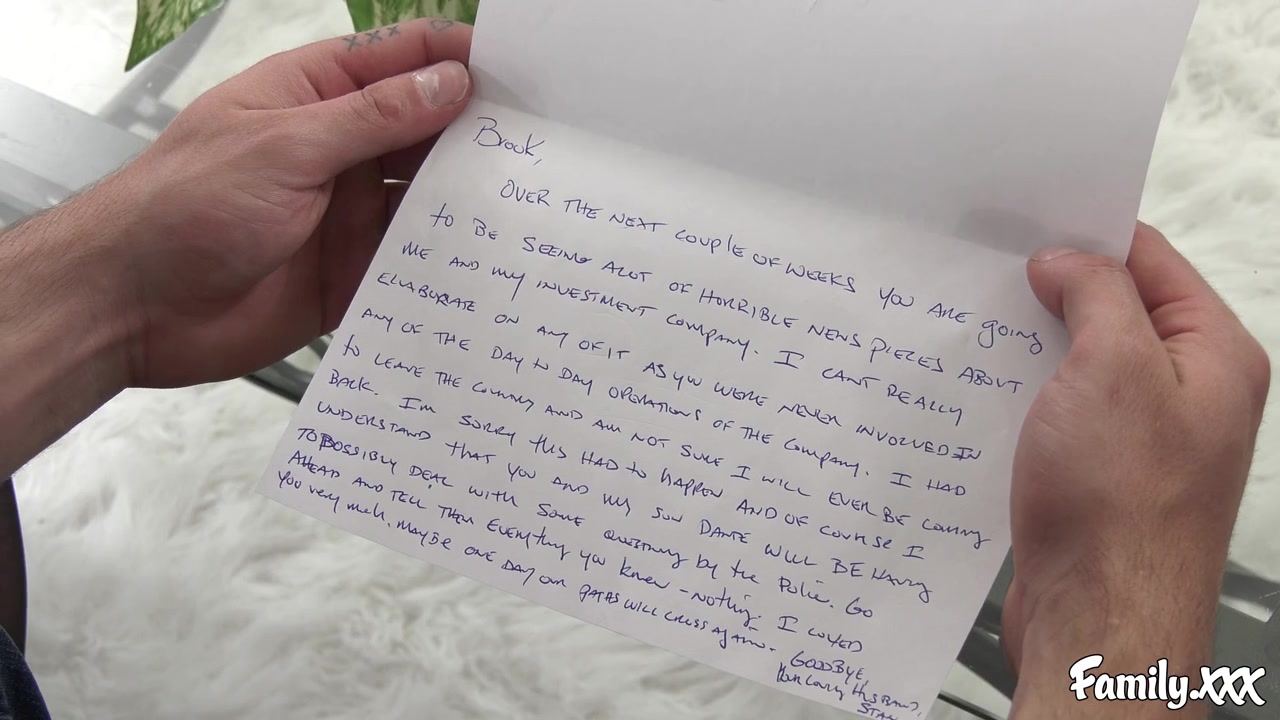 XXX
Brook,
OVER THE NEXT COUPLE OF WEEKS YOU ARE going
to BE SEEING ALOT OF HORRIBLE NEWS PIECES ABOUT
ME AND MY INVESTMENT COMPANY. I CANT REALLY
ELLABORATE ON ANY OF IT AS YOU WERE NEVER INVOLVED IN
ANY OF THE DAY to DAY OPERATIONS OF THE COMPANY. I HAD
to LEAVE THE COUNTRY AND AM NOT SURE I WILL EVER BE COMING
BACK. I'M SORRY this HAD to HAPPEN AND OF COURSE I
UNDERSTAND that YOU AND MY SON DANTE WILL BE HAVING
TO POSSIBLY DEAL WITH SOME QUESTIONING by the Police. Go
AHEAD AND TELL THEM EVERYTHING YOU KNEW - NOTHING. I LOVED
YOU very much. MAYBE ONE DAY OUR PATHS WILL CROSS AGAIN. GOODBYE,
Your Loving HUSBAND,
STAN
Family.XXX